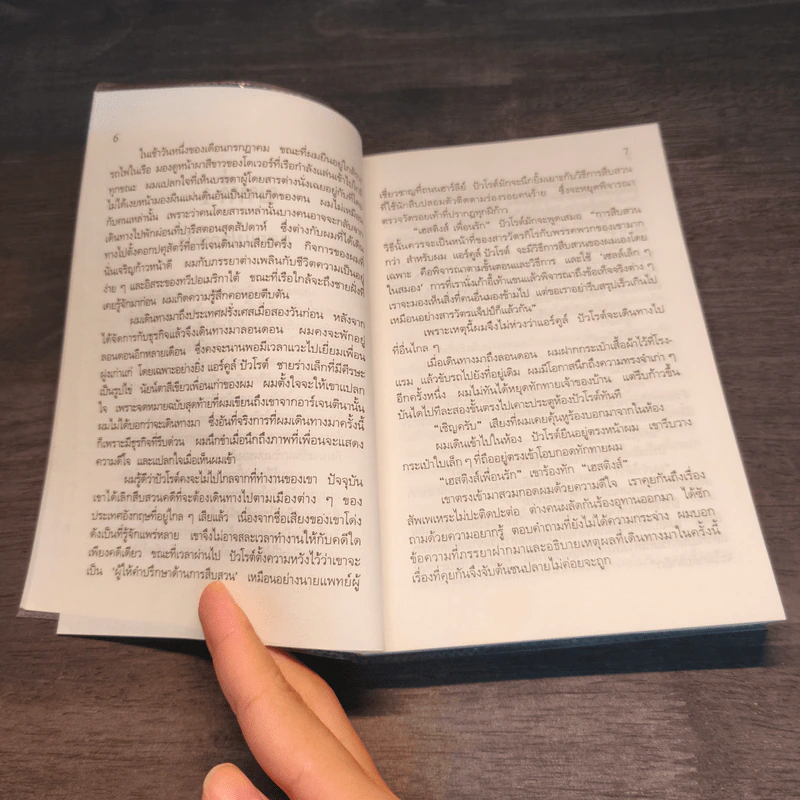 6
ในเช้าวันหนึ่งของเดือนกรกฎาคม ขณะที่ผมยืนอยู่ใกล้ๆ
รถไฟในเรือ มองดูหน้าผาสีขาวของโดเวอร์ที่เรือกำลังแล่นเข้าไปใกล้
ทุกขณะ ผมแปลกใจที่เห็นบรรดาผู้โดยสารต่างนั่งเฉยอยู่กับที่โดย
ไม่ได้เงยหน้ามองผืนแผ่นดินอันเป็นบ้านเกิดของตน ผมไม่เหมือน
กับคนเหล่านั้น เพราะว่าคนโดยสารเหล่านั้นบางคนอาจจะกลับจาก
เดินทางไปพักผ่อนที่ปารีสตอนสุดสัปดาห์ ซึ่งต่างกับผมที่ได้เดิน
ทางไปตั้งคอกปศุสัตว์ที่อาร์เจนตินามาเสียปีครึ่ง กิจการของผม
นั่นเจริญก้าวหน้าดี ผมกับภรรยาต่างเพลินกับชีวิตความเป็นอยู่
ง่าย ๆ และอิสระของทวีปอเมริกาใต้ ขณะที่เรือใกล้จะถึงชายฝั่งที่
เคยรู้จักมาก่อน ผมเกิดความรู้สึกคอหอยตีบตัน
ผมเดินทางมาถึงประเทศฝรั่งเศสเมื่อสองวันก่อน หลังจาก
ได้จัดการกับธุรกิจแล้วจึงเดินทางมาลอนดอน ผมคงจะพักอยู่
ลอนดอนอีกหลายเดือน ซึ่งคงจะนานพอมีเวลาแวะไปเยี่ยมเพื่อน
ฝูงเก่าแก่ โดยเฉพาะอย่างยิ่ง แอร์คูลส์ ปัวโรต์ ชายร่างเล็กที่มีศีรษะ
เป็นรูปไข่ นัยน์ตาสีเขียวเพื่อนเก่าของผม ผมตั้งใจจะให้เขาแปลก
ใจ เพราะจดหมายฉบับสุดท้ายที่ผมเขียนถึงเขาจากอาร์เจนตินานั้น
ผมไม่ได้บอกว่าจะเดินทางมา ซึ่งอันที่จริงการที่ผมเดินทางมาครั้งนี้
ก็เพราะมีธุรกิจที่รีบด่วน ผมนึกขำเมื่อนึกถึงภาพที่เพื่อนจะแสดง
ความดีใจ และแปลกใจเมื่อเห็นผมเข้า
ผมรู้ดีว่าปัวโรต์คงจะไม่ไปไกลจากที่ทำงานของเขา ปัจจุบัน
เขาได้เลิกสืบสวนคดีที่จะต้องเดินทางไปตามเมืองต่าง ๆ ของ
ประเทศอังกฤษที่อยู่ไกล ๆ เสียแล้ว เนื่องจากชื่อเสียงของเขาโด่ง
ดังเป็นที่รู้จักแพร่หลาย เขาจึงไม่อาจสละเวลาทำงานให้กับคดีใด
เพียงคดีเดียว ขณะที่เวลาผ่านไป ปัวโรต์ตั้งความหวังไว้ว่าเขาจะ
เป็น ‘ผู้ให้คำปรึกษาด้านการสืบสวน’ เหมือนอย่างนายแพทย์ผู้
7
เชี่ยวชาญที่ถนนฮาร์ลีย์ ปัวโรต์มักจะนึกยิ้มเยาะกับวิธีการสืบสวน
ที่ใช้นักสืบปลอมตัวติดตามร่องรอยคนร้าย ซึ่งจะหยุดพิจารณา
ตรวจวัดรอยเท้าที่ปรากฏทุกฝีก้าว
“เฮสติงส์ เพื่อนรัก” ปัวโรต์มักจะพูดเสมอ “การสืบสวน
วิธีนั้นควรจะเป็นหน้าที่ของสารวัตรกิโรกับพรรคพวกของเขามาก
กว่า สำหรับผม แอร์คูลส์ ปัวโรต์ จะมีวิธีการสืบสวนของผมเองโดย
เฉพาะ คือพิจารณาตามขั้นตอนและวิธีการ และใช้ ‘เซลล์เล็ก ๆ
ในสมอง’ การที่เรานั่งเก้าอี้เท้าแขนแล้วพิจารณาถึงข้อเท็จจริงต่าง ๆ
เราจะมองเห็นสิ่งที่คนอื่นมองข้ามไป แต่ขอเราอย่ารีบสรุปเร็วเกินไป
เหมือนอย่างสารวัตรแจ๊ปป์ก็แล้วกัน”
เพราะเหตุนี้ผมจึงไม่ห่วงว่าแอร์คูลส์ ปัวโรต์จะเดินทางไป
ที่อื่นไกล ๆ
เมื่อเดินทางมาถึงลอนดอน ผมฝากกระเป๋าเสื้อผ้าไว้ที่โรง-
แรม แล้วขับรถไปยังที่อยู่เดิม ผมมีโอกาสนึกถึงความทรงจำเก่า ๆ
อีกครั้งหนึ่ง ผมไม่ทันได้หยุดทักทายเจ้าของบ้าน แต่รีบก้าวขึ้น
บันไดไปทีละสองขั้นตรงไปเคาะประตูห้องปัวโรต์ทันที
“เชิญครับ” เสียงที่ผมเคยคุ้นหูร้องบอกมาจากในห้อง
ผมเดินเข้าไปในห้อง ปัวโรต์ยืนอยู่ตรงหน้าผม เขารีบวาง
กระเป๋าใบเล็ก ๆ ที่ถืออยู่ตรงเข้าโอบกอดทักทายผม
“เฮสติงส์เพื่อนรัก” เขาร้องทัก “เฮสติงส์”
เขาตรงเข้ามาสวมกอดผมด้วยความดีใจ เราคุยกันถึงเรื่อง
สัพเพเหระไม่ปะติดปะต่อ ต่างคนผลัดกันร้องอุทานออกมา ได้ซัก
ถามด้วยความอยากรู้ ตอบคำถามที่ยังไม่ได้ความกระจ่าง ผมบอก
ข้อความที่ภรรยาฝากมาและอธิบายเหตุผลที่เดินทางมาในครั้งนี้
เรื่องที่คุยกันจึงจับต้นชนปลายไม่ค่อยจะถูก